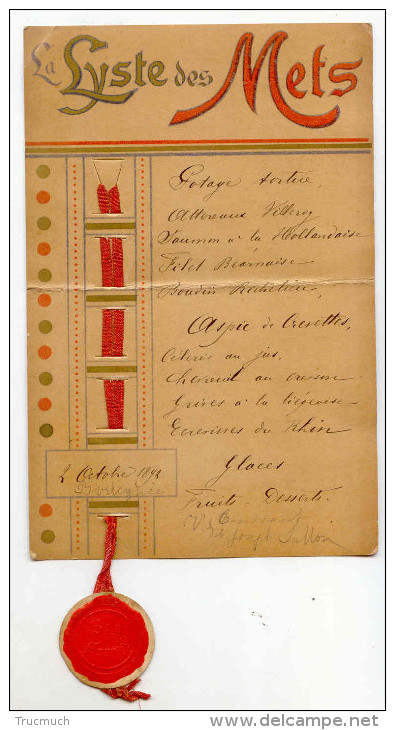 La Lyste des Mets
Potage tortue,
Attereaux Villeroy
Saumon à la Hollandaise
Filet Bearnaise
Boudin Richelieu,
Aspic de Crevettes,
Céleris au jus,
Chevreuil au cresson
Grives à la liégeoise
Ecrevisses du Rhin
Glaces
Fruits - Desserts.
2 Octobre 1892
Joseph
Trucmuch
delcampe.net